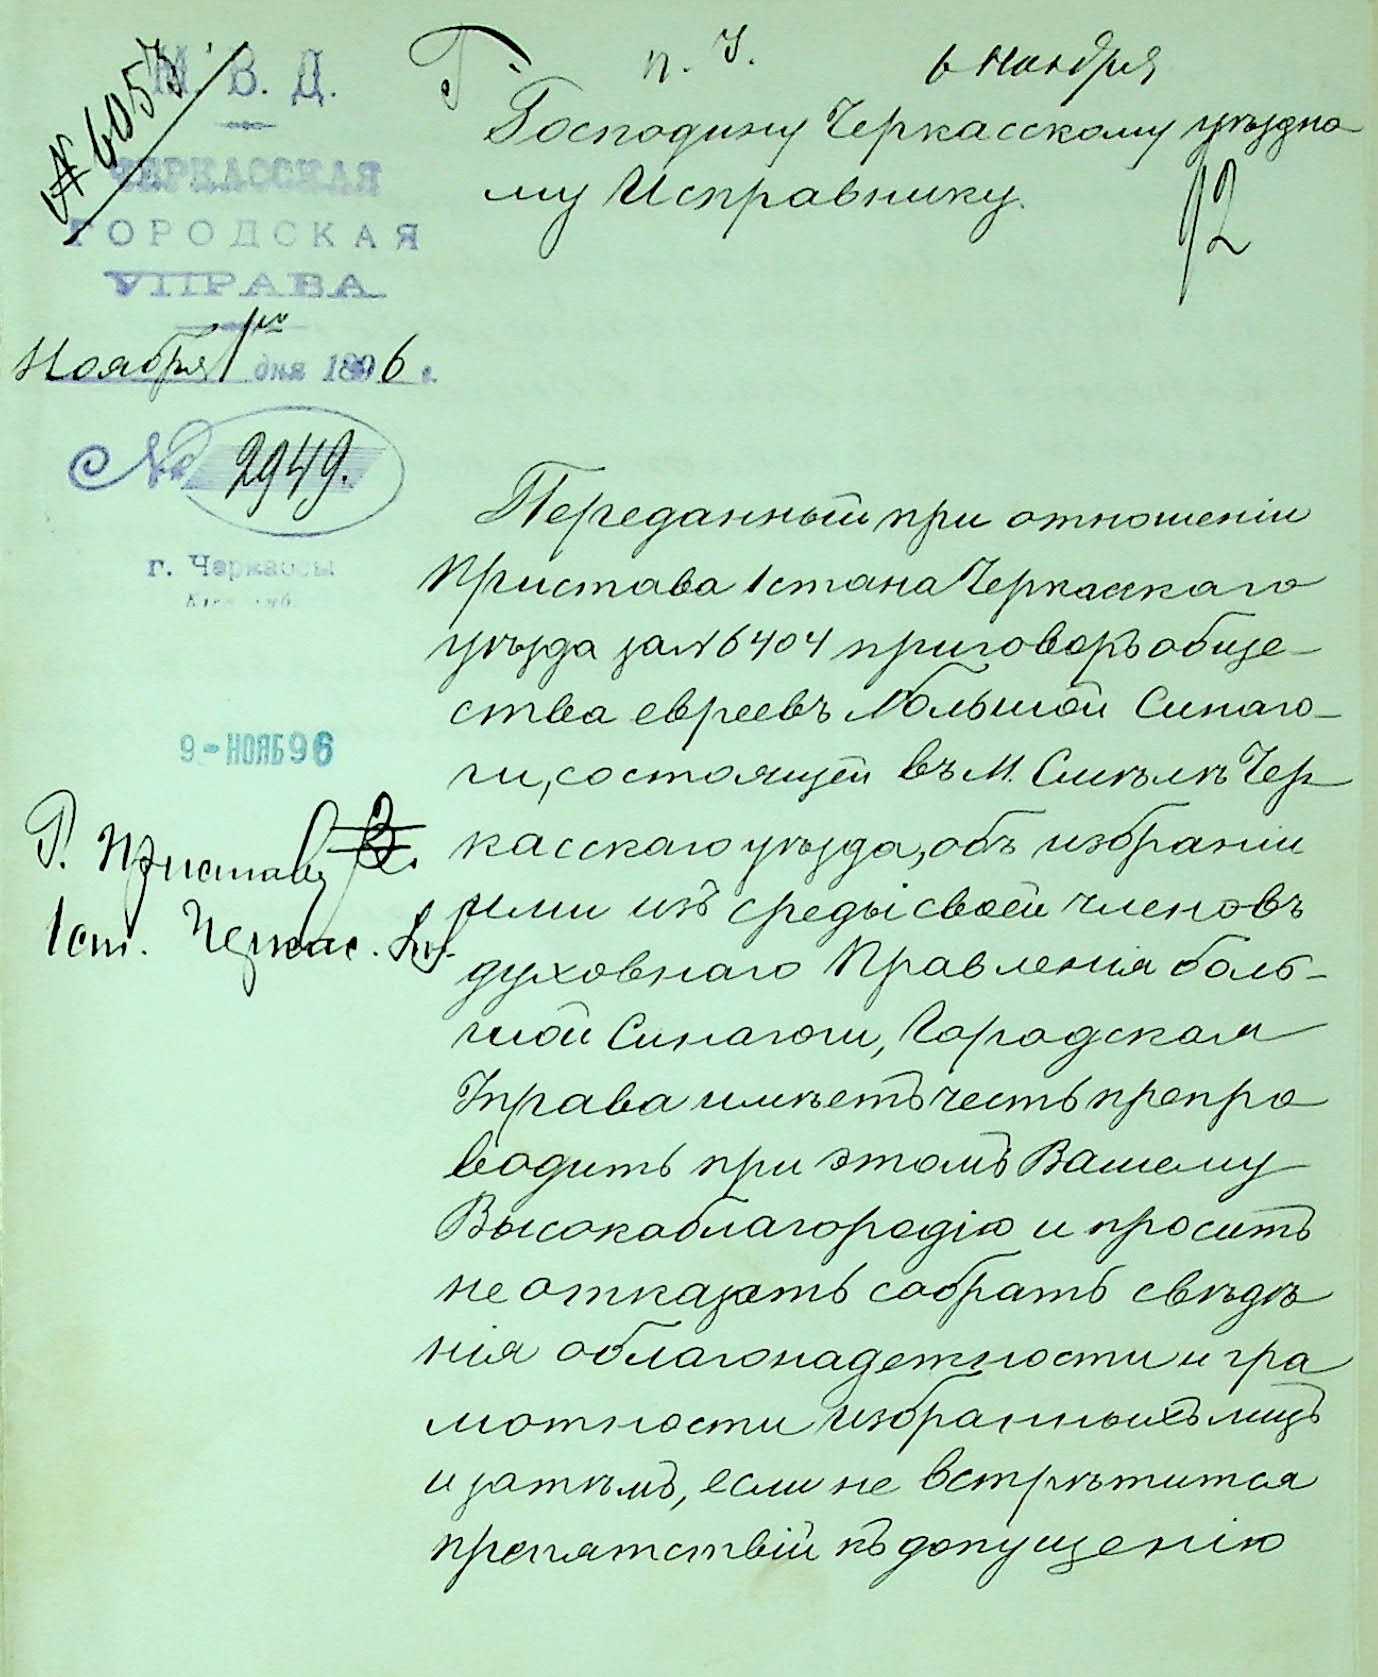 М. В. Д.
ЧЕРКАССКАЯ
ГОРОДСКАЯ
УПРАВА
Ноября 1го дня 1896 г.
№ 2949.
г. Черкассы
Киев. губ.
9 - НОЯБ 96
Г. Приставу
1 ст. Черкас.
п. У. 6 Ноября
Господину Черкасскому уѣздно-
му Исправнику.
92
Переданный при отношеніи
Пристава 1 стана Черкасскаго
уѣзда за № 6404 приговоръ обще-
ства евреевъ Большой Синаго-
ги, состоящей въ м. Смѣлѣ Чер-
касскаго уѣзда, объ избраніи
ими изъ среды своей членовъ
духовнаго Правленія боль-
шой Синагоги, Городская
Управа имѣетъ честь препро
водить при этомъ Вашему
Высокоблагородію и проситъ
не отказать собрать свѣдѣ
нія о благонадежности и гра
мотности избранныхъ лицъ
и затѣмъ, если не встрѣтится
препятствій къ допущенію